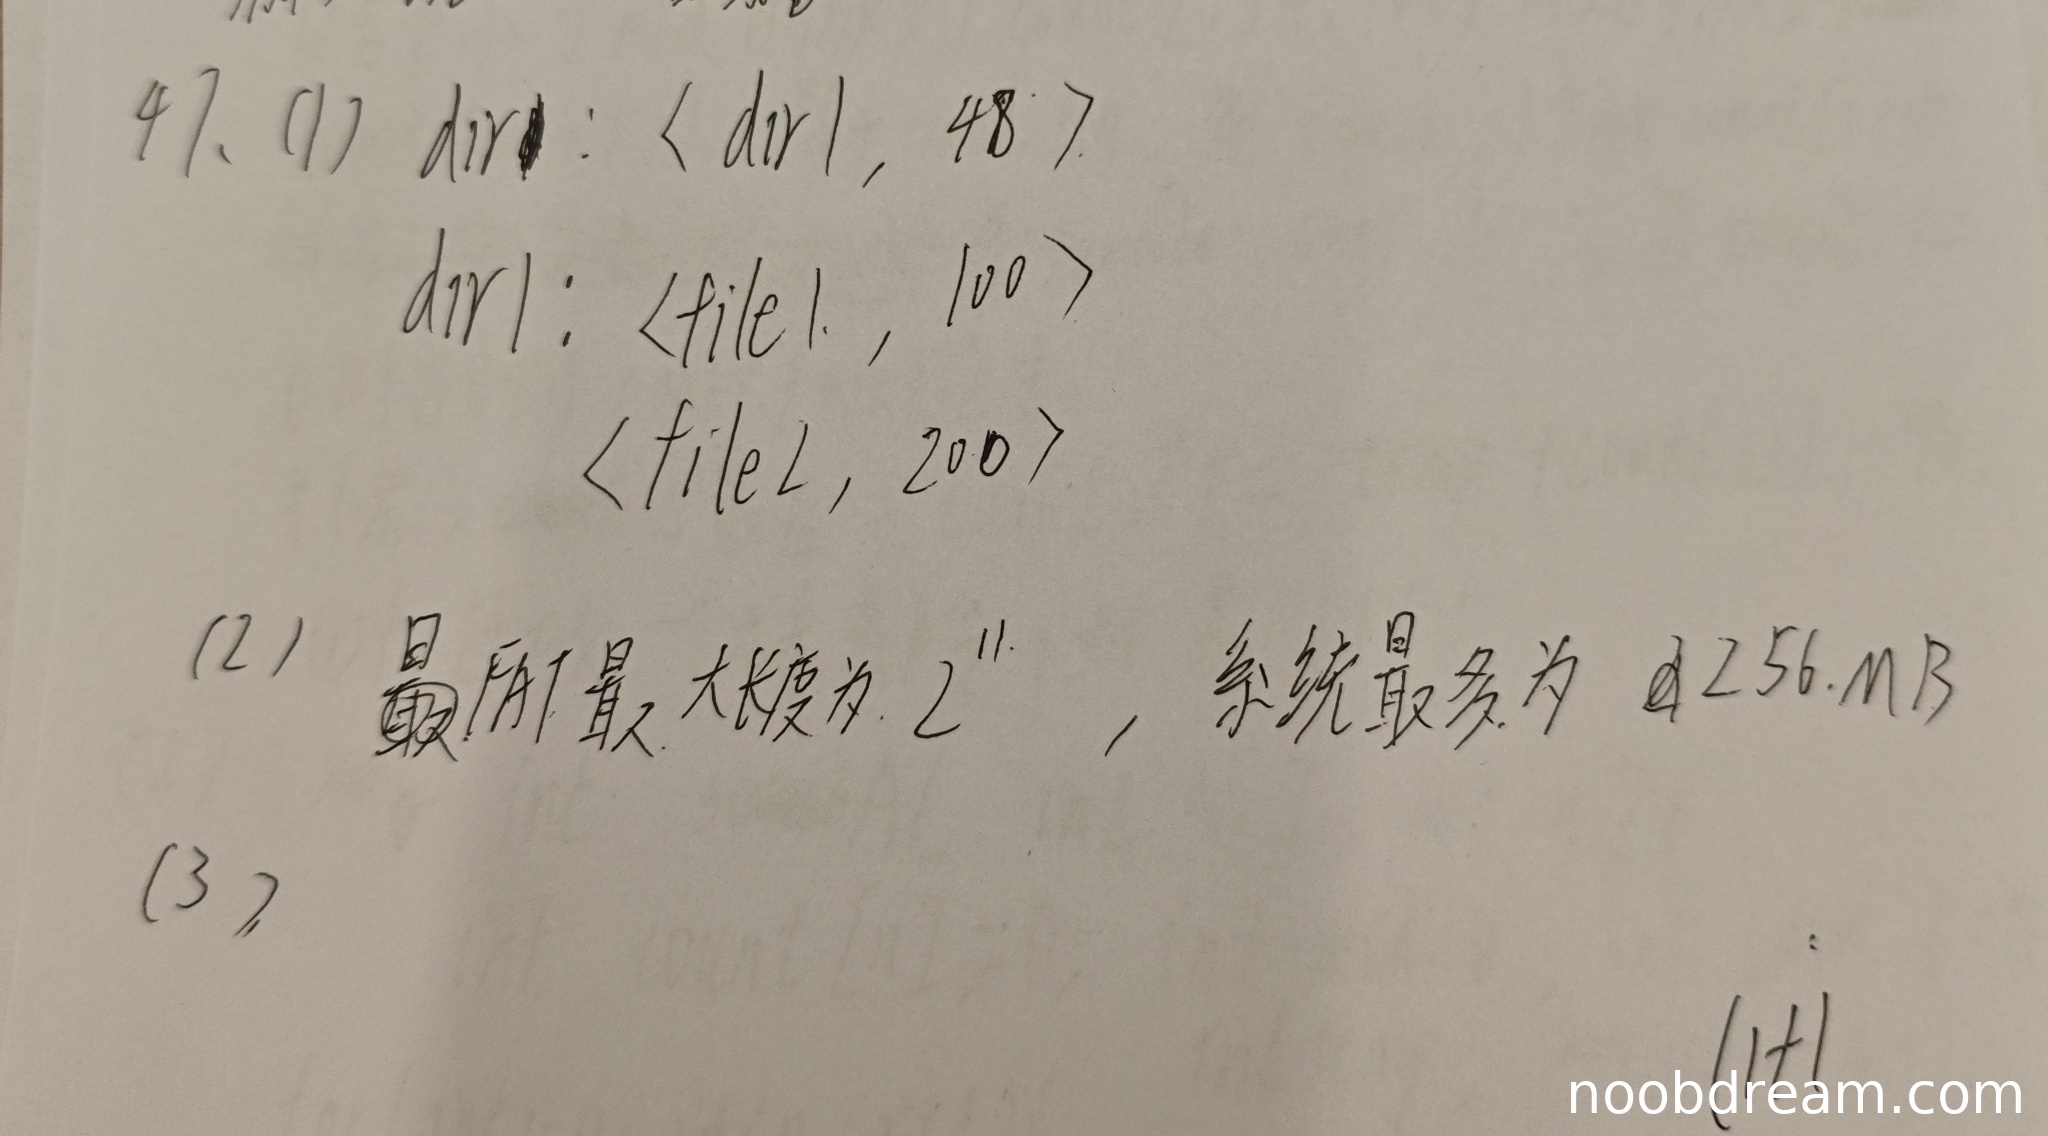 47、(1) dir : <dir1, 48>
dir1: <file1, 100>
<file2, 200>
(2) 所最大长度为 2^11, 系统最多为 256MB
(3)
(1+1
noobdream.com